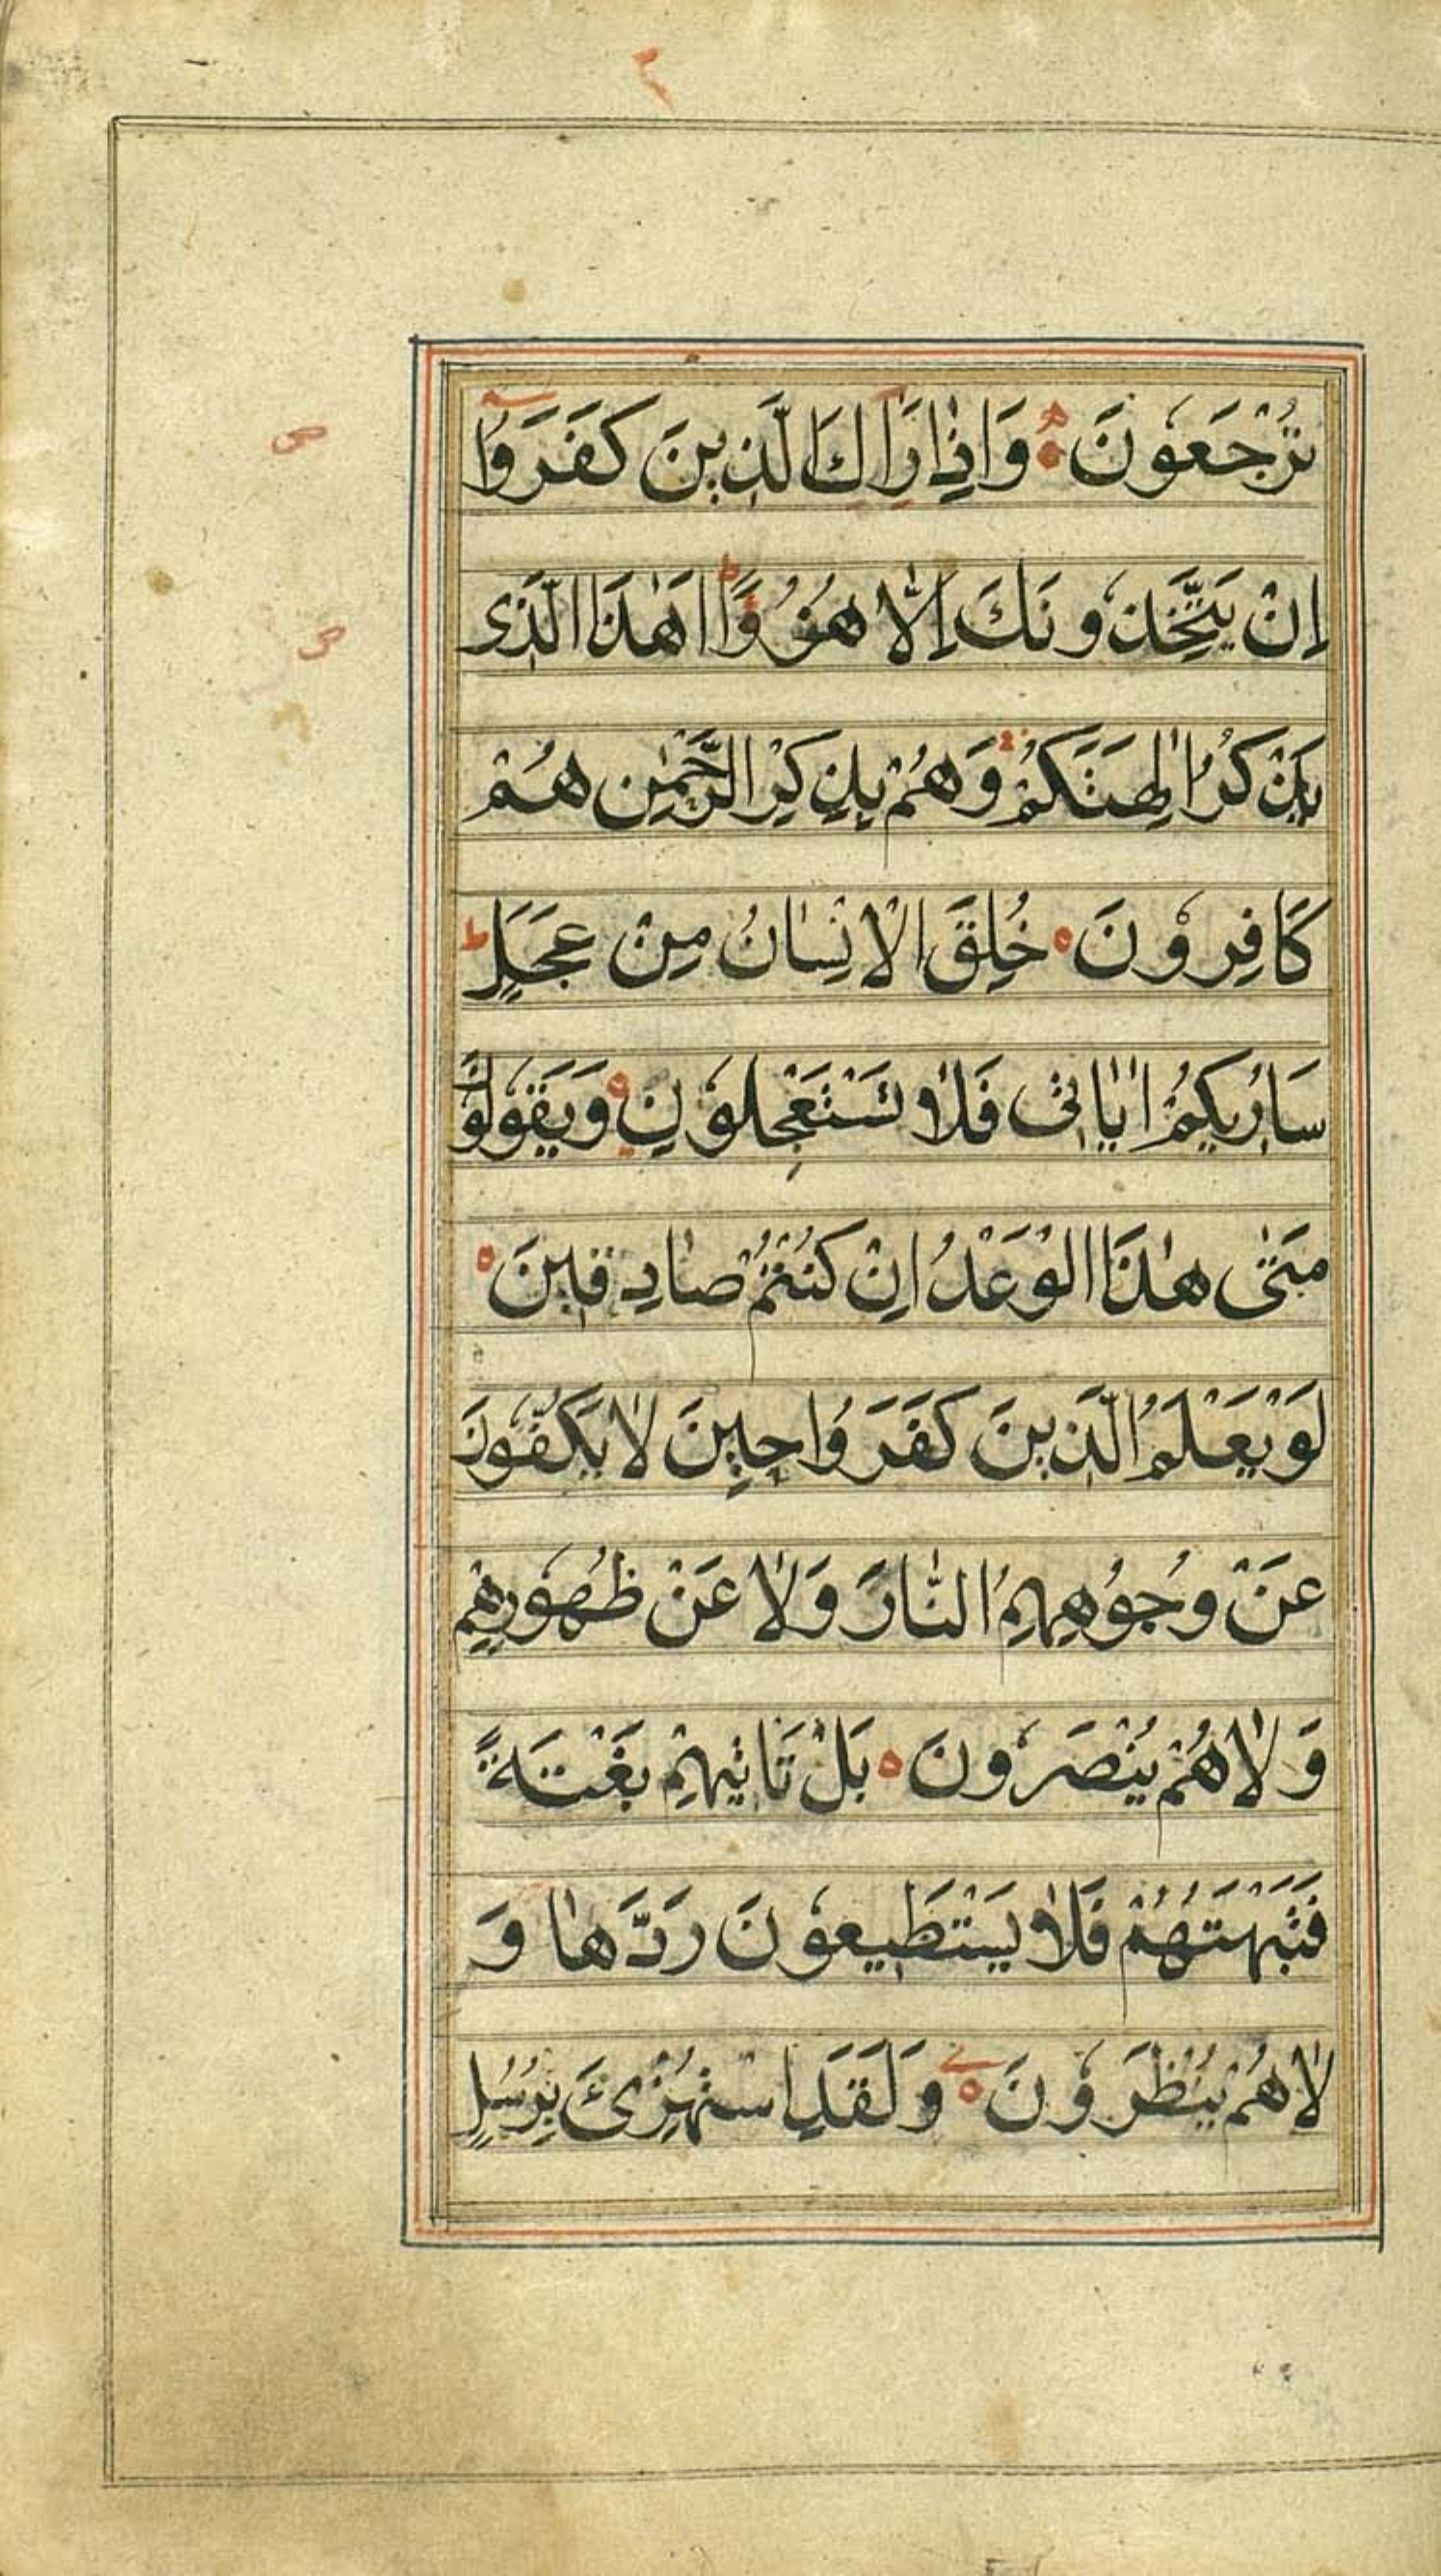 ٢
تُرْجَعُونَ ه وَاِذٰا رَاٰكَ الَّذِينَ كَفَرُوٓا
اِنْ يَتَّخِذُونَكَ اِلّٰا هُزُوًا ط اَهٰذَا الَّذِى
يَذْكُرُ اٰلِهَتَكُمْ وَهُمْ بِذِكْرِ الرَّحْمٰنِ هُمْ
كَافِرُونَ ه خُلِقَ الْاِنْسٰانُ مِنْ عَجَلٍ ط
سَاُرِيكُمْ اٰيٰاتِى فَلٰا تَسْتَعْجِلُونِ ه وَيَقُولُونَ
مَتٰى هٰذَا الْوَعْدُ اِنْ كُنْتُمْ صٰادِقِينَ ه
لَوْ يَعْلَمُ الَّذِينَ كَفَرُوا حِينَ لٰا يَكُفُّونَ
عَنْ وُجُوهِهِمُ النّٰارَ وَلٰا عَنْ ظُهُورِهِمْ
وَلٰا هُمْ يُنْصَرُونَ ه بَلْ تَاْتِيهِمْ بَغْتَةً
فَتَبْهَتُهُمْ فَلٰا يَسْتَطِيعُونَ رَدَّهٰا وَ
لٰا هُمْ يُنْظَرُونَ ه وَلَقَدِ اسْتُهْزِئَ بِرُسُلٍ